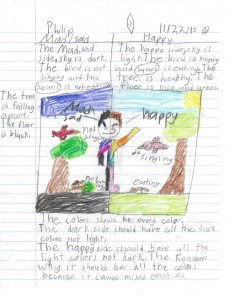 Philip
11/22/12
Mad/sad
Happy
The Mad/sad
side, sky is dark.
The bird is not
singing and the
The happy side, sky is
light. The bird is singing
and is eating. The
tree is healthy. The
The tree
is falling
apart.
The floor
is black.
Mad
sad
happy
not
singing
singing
not
eating
The colors should be every color.
The dark side should have all the dark
colors not light.
The happy side should have all the
light colors not dark. The Reason
why it should be all the colors
because it